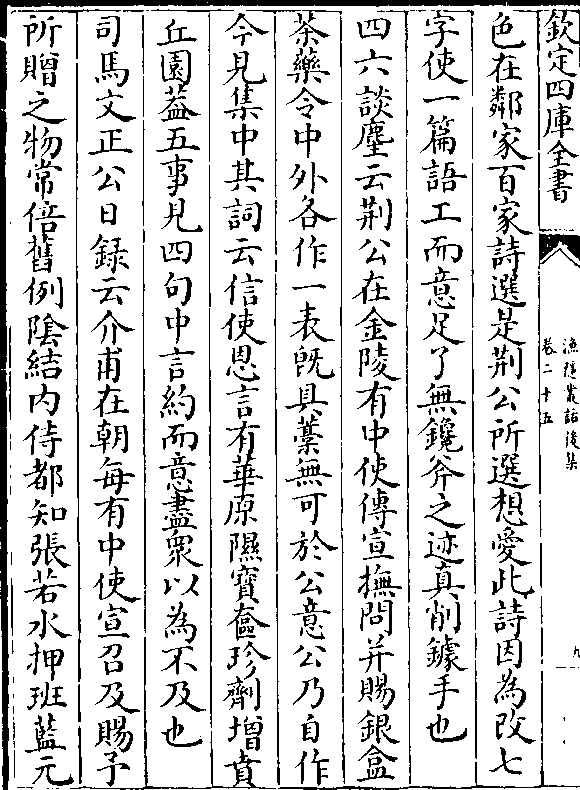 欽定四庫全書
漁隱叢話後集
卷二十五
九
色在鄰家百家詩選是荆公所選想愛此詩因為改七
字使一篇語工而意足了無鑱斧之迹真削鐻手也
四六談麈云荆公在金陵有中使傳宣撫問并賜銀盒
茶藥令中外各作一表旣具藁無可於公意公乃自作
今見集中其詞云信使恩言有華原隰寶奩珍劑增賁
丘園葢五事見四句中言約而意盡衆以為不及也
司馬文正公日録云介甫在朝每有中使宣召及賜予
所贈之物常倍舊例隂結内侍都知張若水押班藍元